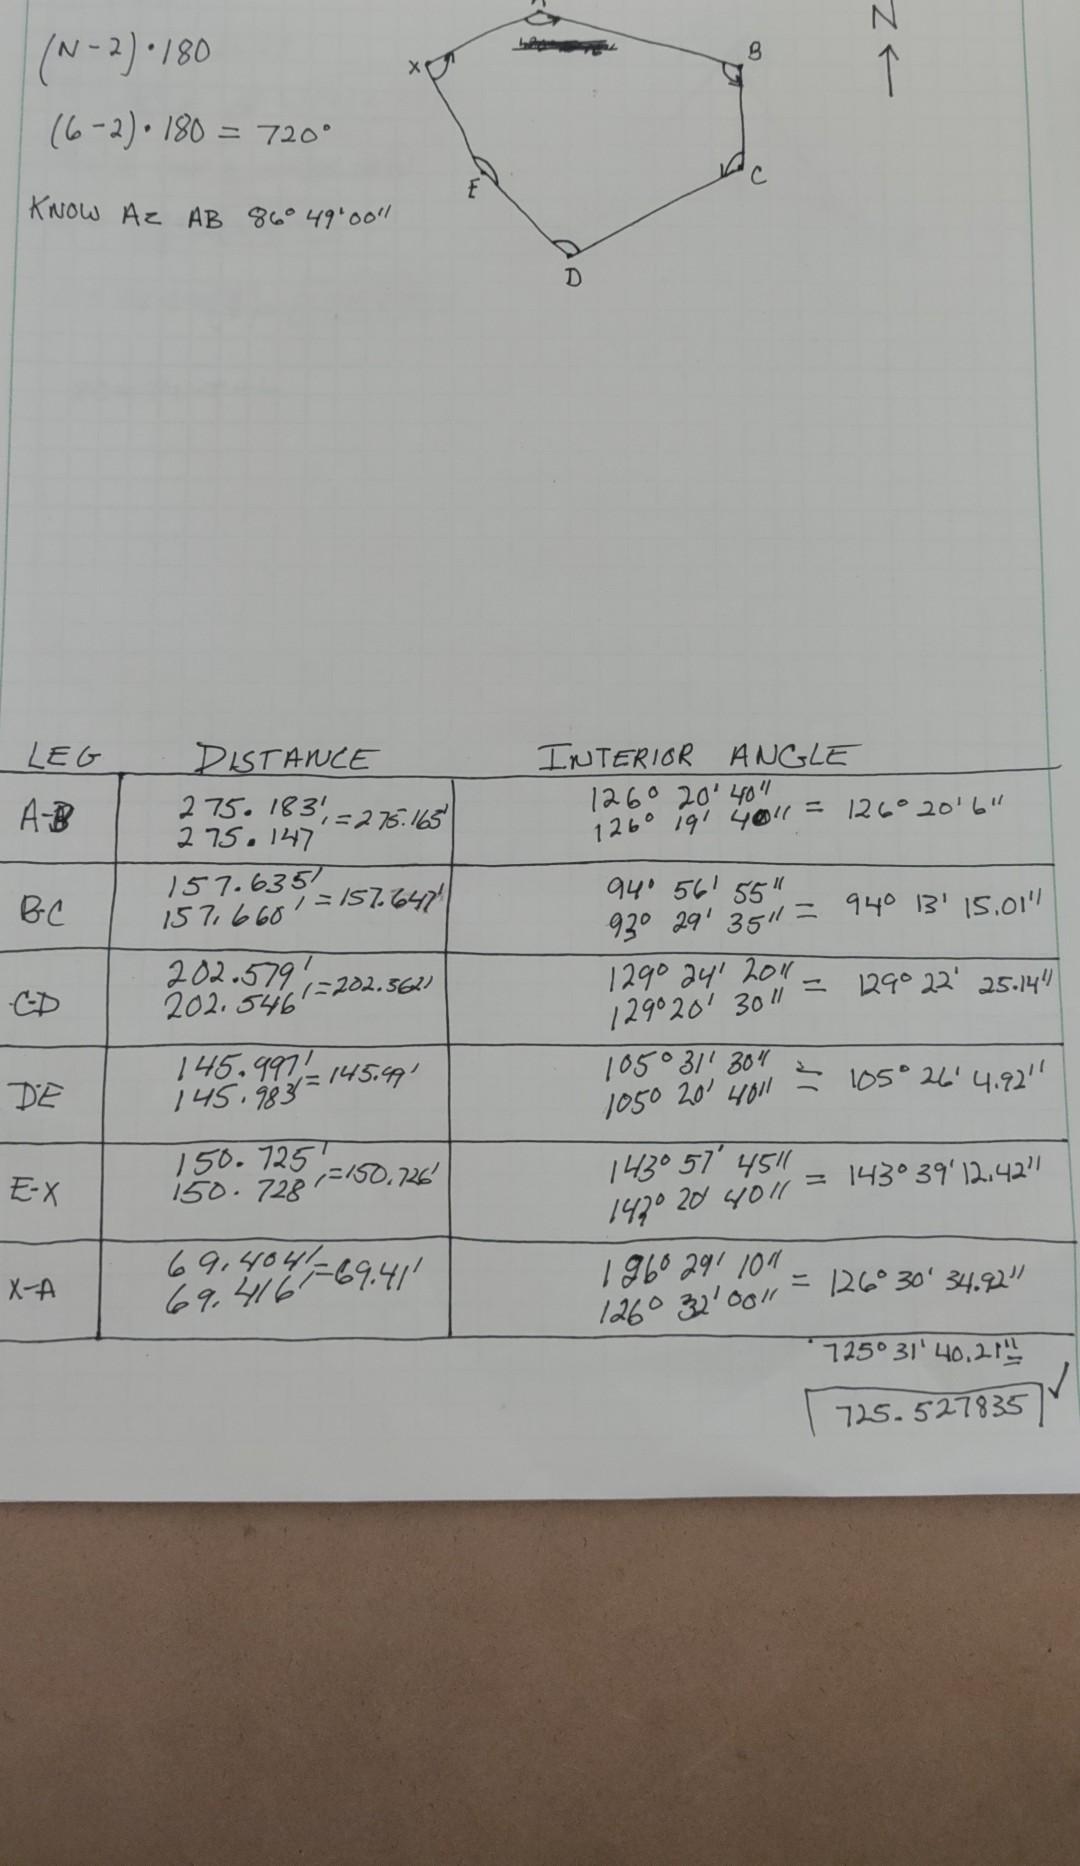 (N-2)·180
(6-2)·180 = 720°
KNOW AZ AB 86° 49' 00"
N
X
B
C
E
D
LEG DISTANCE INTERIOR ANGLE
A-B 275.183' 126° 20' 40"
275.147 = 275.165' 126° 19' 40" = 126° 20' 6"
BC 157.635' 94° 56' 55"
157.660' = 157.647' 93° 29' 35" = 94° 13' 15.01"
C-D 202.579' 129° 24' 20"
202.546' = 202.562' 129° 20' 30" = 129° 22' 25.14"
DE 145.997' 105° 31' 30"
145.983' = 145.99' 105° 20' 40" = 105° 26' 4.92"
E-X 150.725' 143° 57' 45"
150.728' = 150.726' 143° 20' 40" = 143° 39' 12.42"
X-A 69.404' 126° 29' 10"
69.416' = 69.41' 126° 32' 00" = 126° 30' 34.92"
725° 31' 40.21"
725.527835 ✓